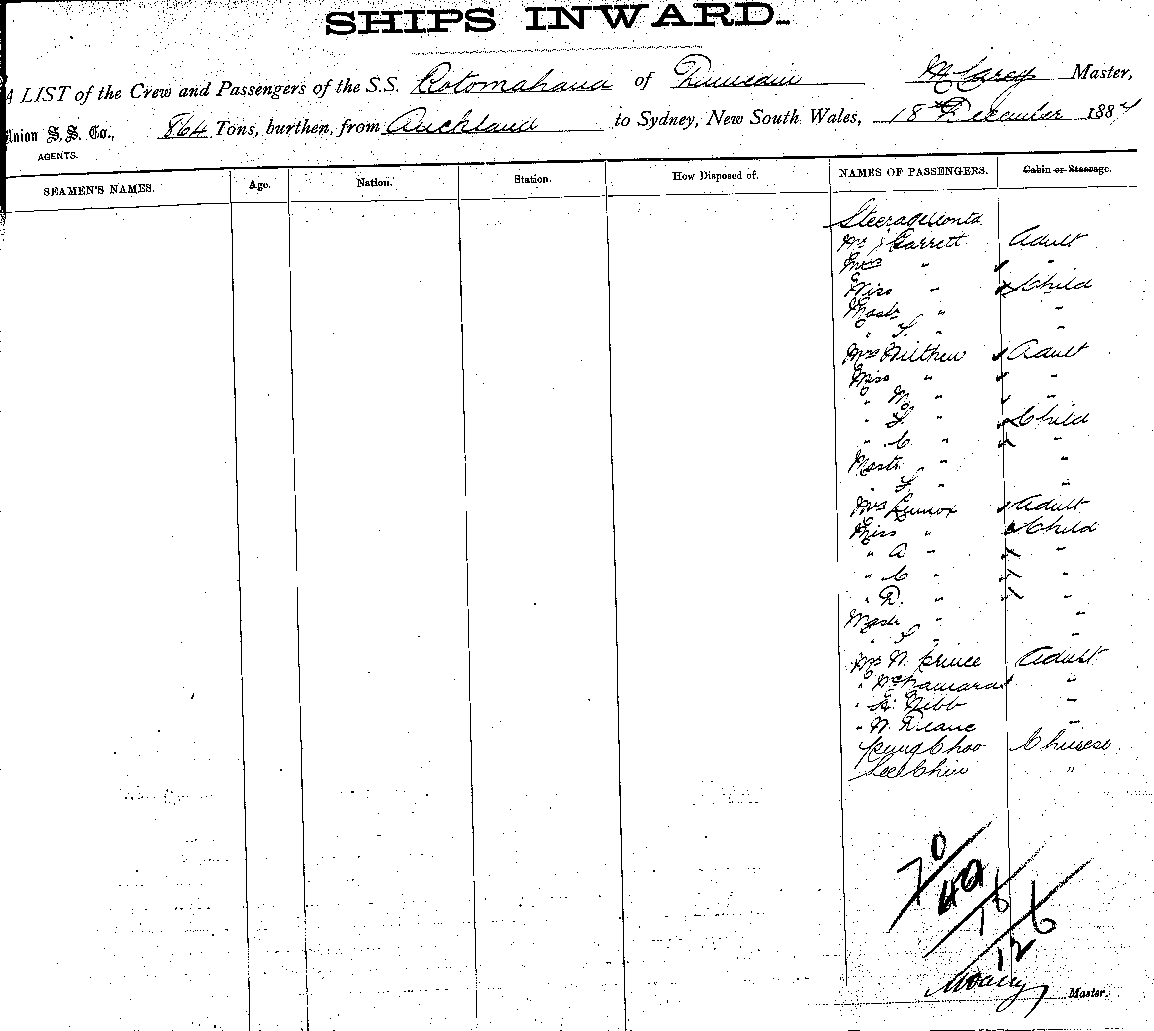 SHIPS INWARD.
A LIST of the Crew and Passengers of the S.S. Rotomahana of Dunedin M Carey Master,
Union S. S. Co., 864 Tons, burthen, from Auckland to Sydney, New South Wales, 18th December 1884
AGENTS.
SEAMEN'S NAMES. Age. Nation. Station. How Disposed of. NAMES OF PASSENGERS. Cabin or Steerage.
Steerage contd
Mr J Garrett Adult
Mrs " "
Miss " Child
Mastr " "
" " "
Mrs Wilthew Adult
Miss " "
" " "
" " Child
" C " "
Mastr " "
" " "
Mrs Lennox Adult
Miss " Child
" A " "
" C " "
" D. " "
Mastr " "
" " "
Mr W. Prince Adult
" McNamara "
" Nibb "
" W. Deane "
Choo Chinese
Lee Chin "
70
49
126
Master.